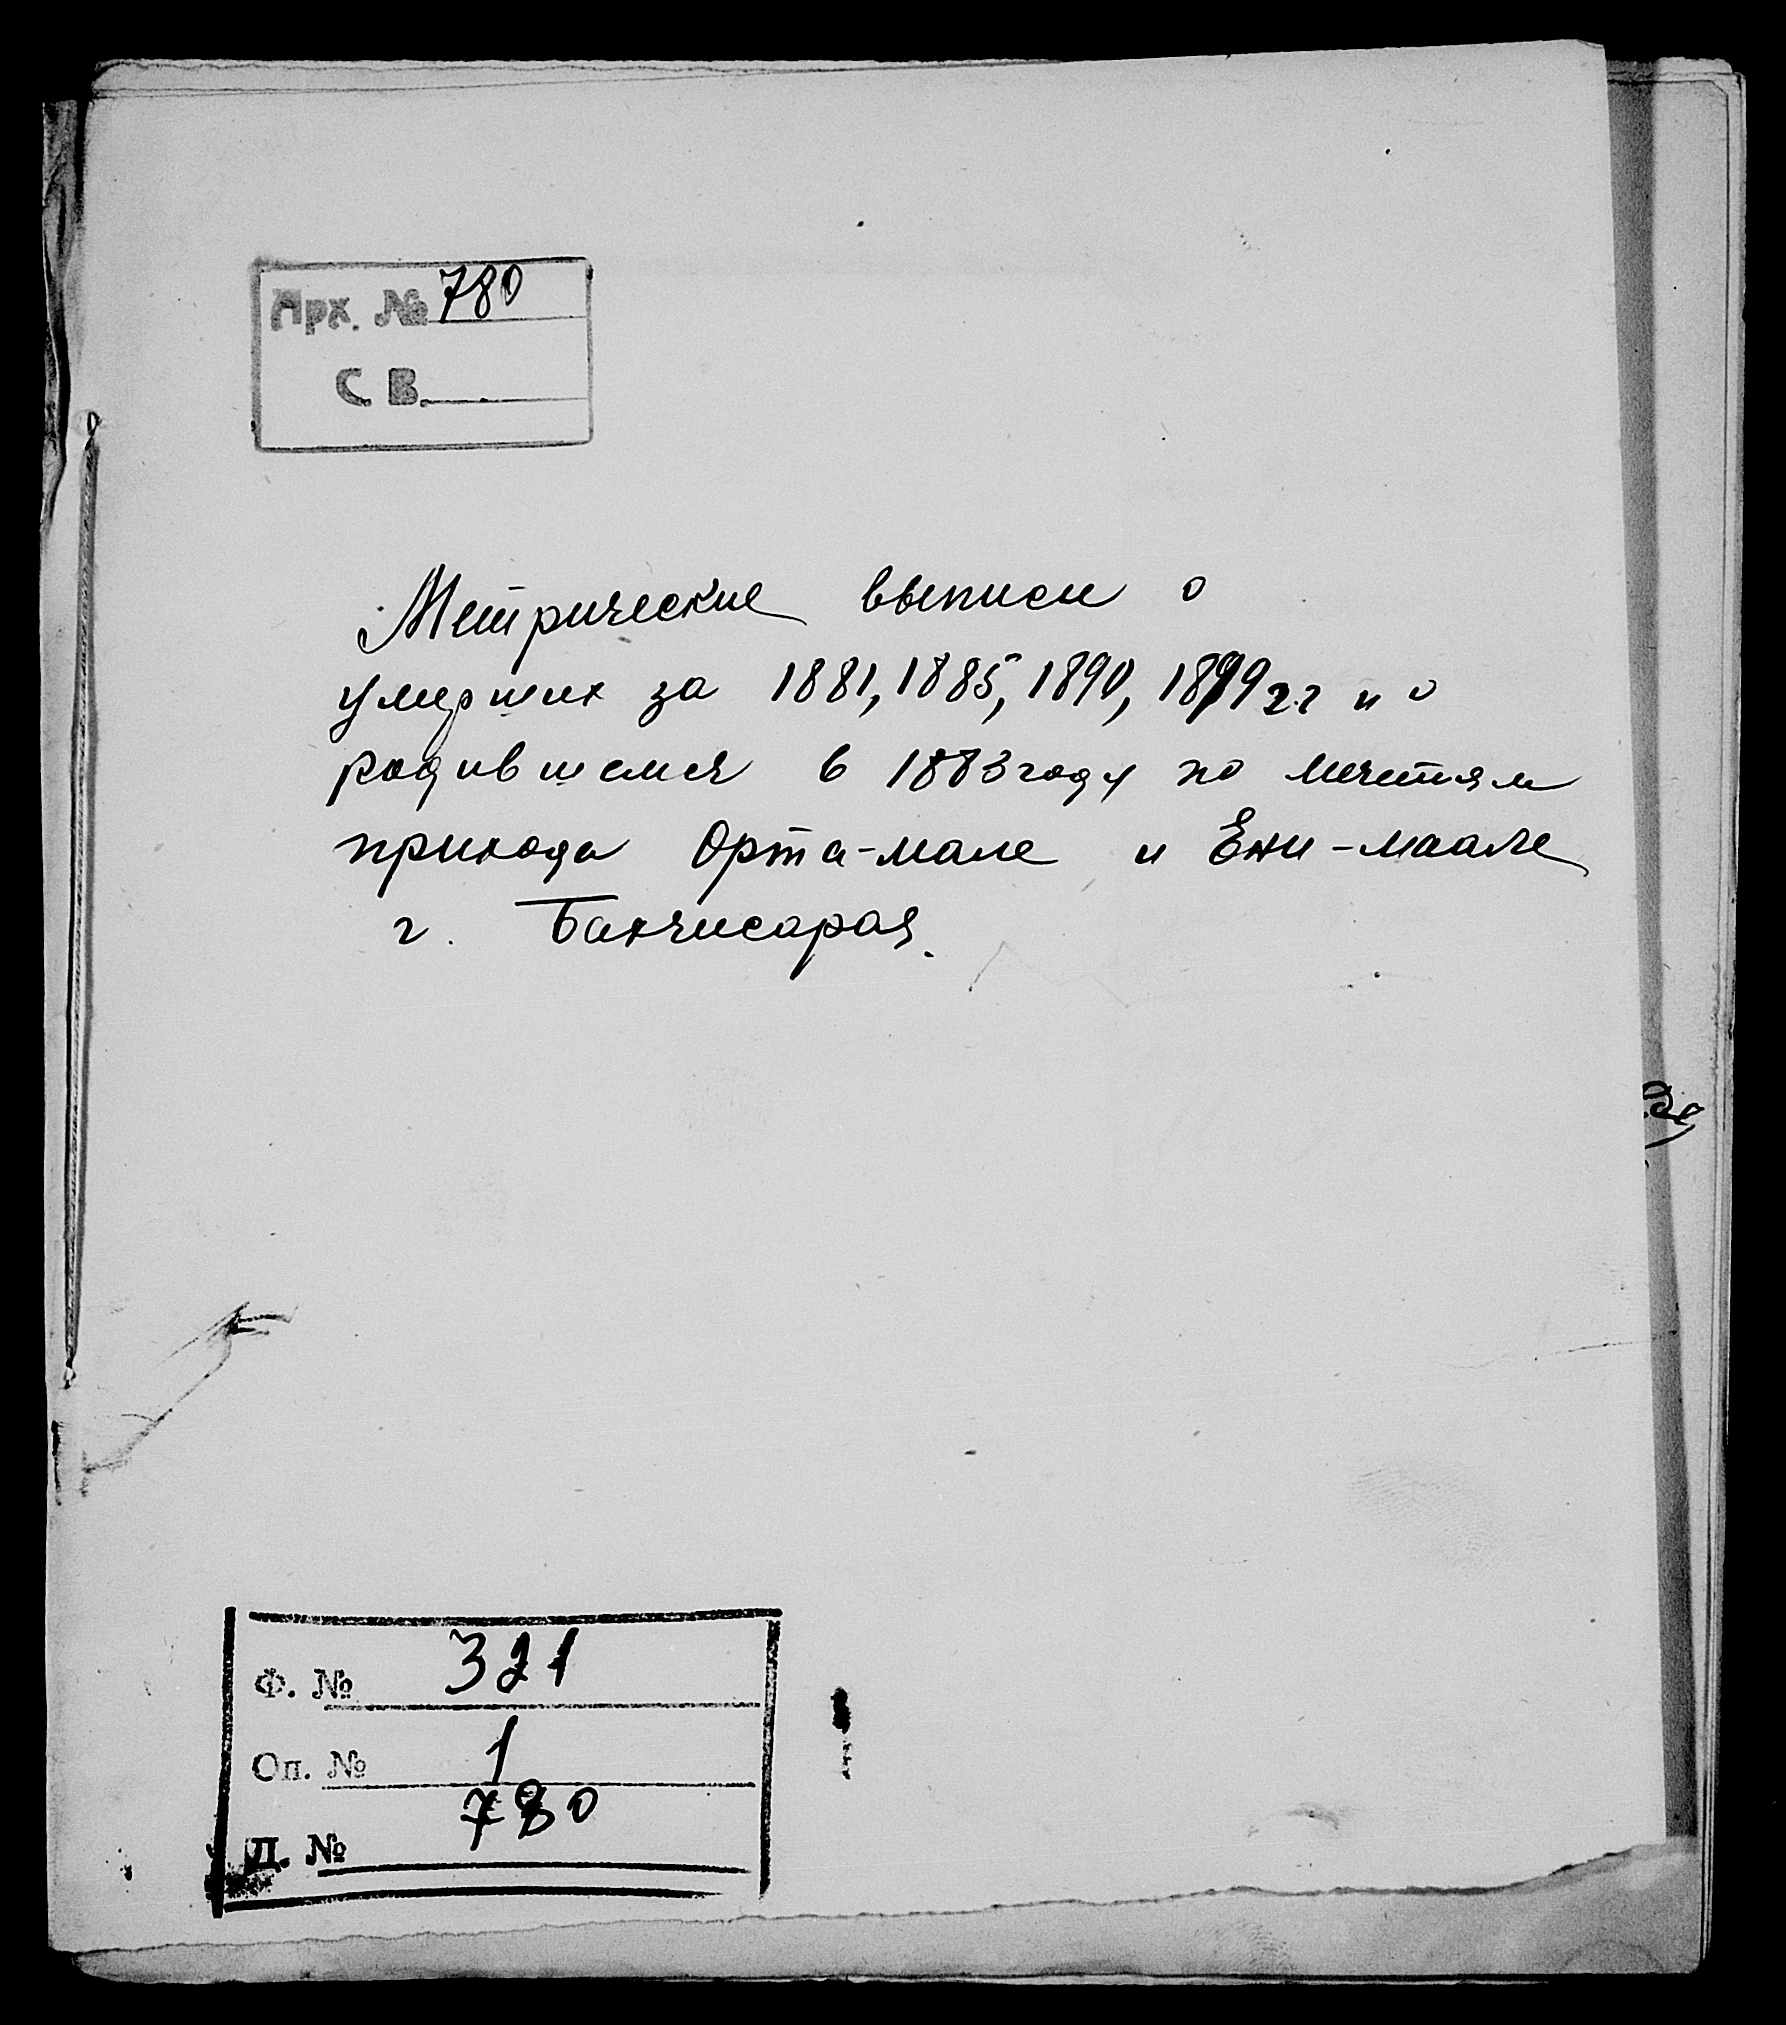 Арх. № 780
С В.
Метрические выписи о
умерших за 1881, 1885, 1890, 1899 г.г и о
родившемся в 1883 году по мечетям
прихода Орта-мале и Ени-маале
г. Бахчисарая.
Ф. № 321
Оп. № 1
Д. № 780